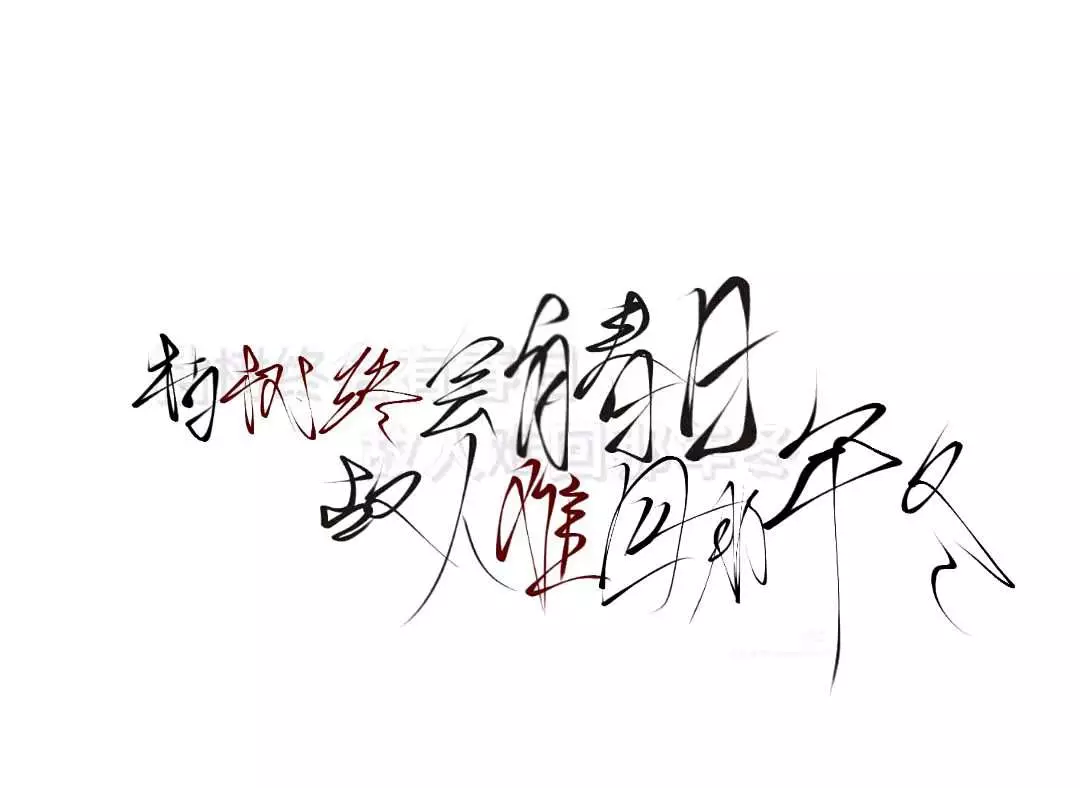 枯树终会有春日
故人难回那年冬